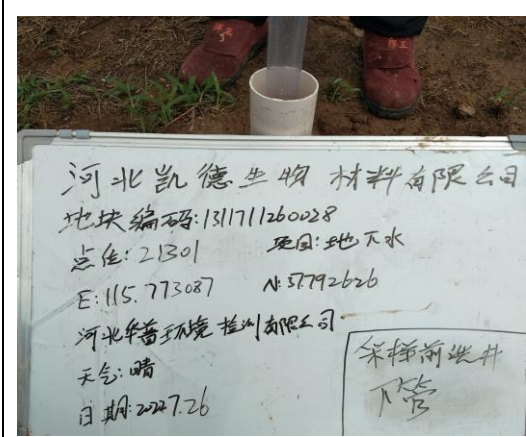 河北凯德生物材料有限公司
地块编码:1311711260028
点位:21301 项目:地下水
E:115.773087 N:37.792626
河北华普环境检测有限公司
天气:晴
日期:2022.7.26
采样前洗井
下管